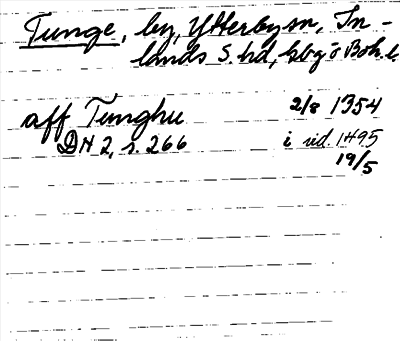 Tunge, by, Ytterby sn, In-
lands S. hd, Gbg o Boh. l.
aff Tunghu 2/8 1354
DN 2, s. 266 i vid. 1495
19/5